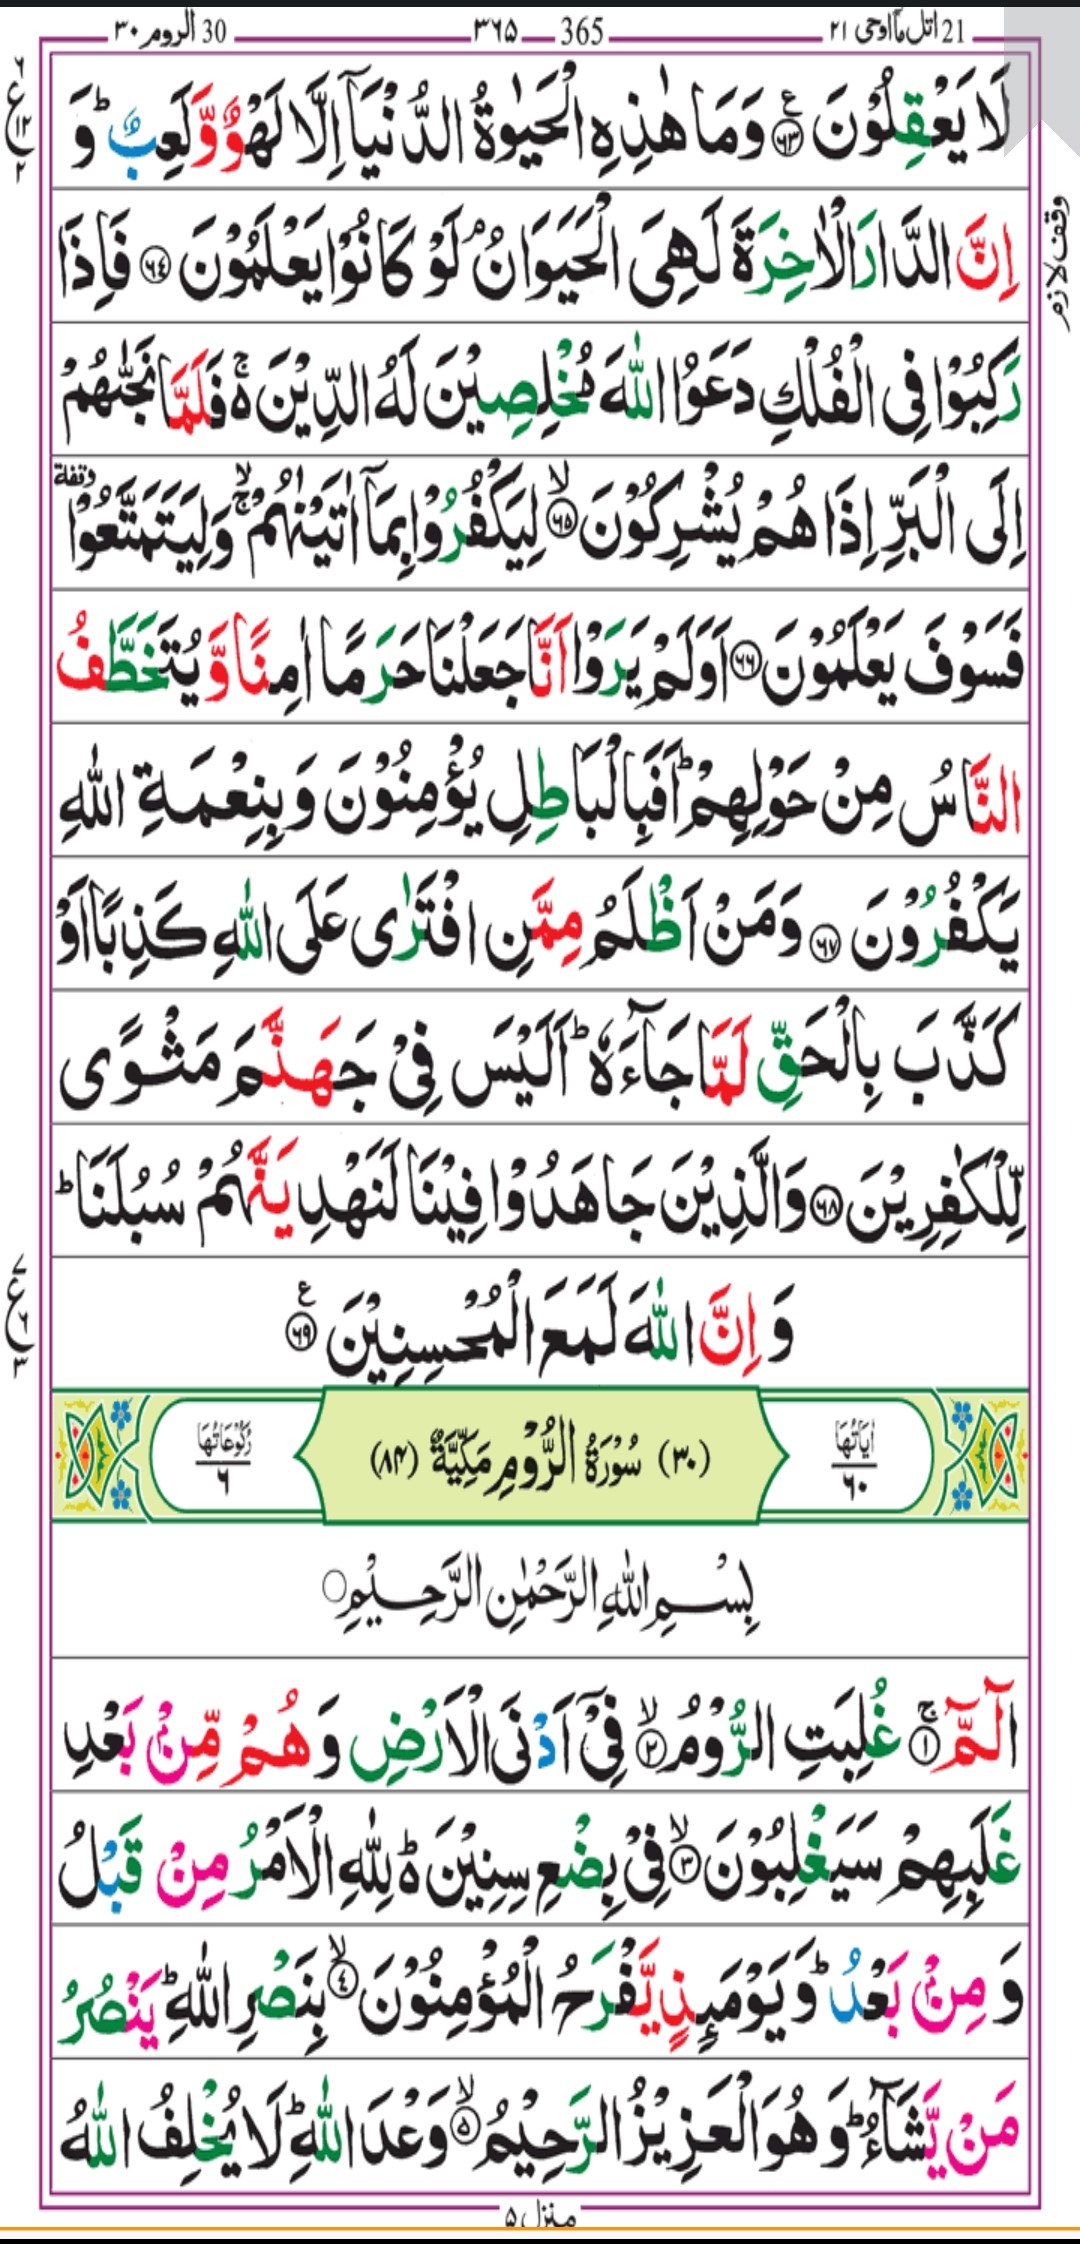 21 اتل مآاوحی ۲۱ 365 ۳۶۵ 30 الروم ۳۰
لَا یَعْقِلُوْنَ ۶۳ وَمَا هٰذِهِ الْحَیٰوةُ الدُّنْیَاۤ اِلَّا لَهْوٌ وَّلَعِبٌ ؕ وَ
اِنَّ الدَّارَ الْاٰخِرَةَ لَهِیَ الْحَیَوَانُ ۘ لَوْ كَانُوْا یَعْلَمُوْنَ ۶۴ فَاِذَا
رَكِبُوْا فِی الْفُلْكِ دَعَوُا اللّٰهَ مُخْلِصِیْنَ لَهُ الدِّیْنَ ۬ۚ فَلَمَّا نَجّٰىهُمْ
اِلَی الْبَرِّ اِذَا هُمْ یُشْرِكُوْنَ ۙ۶۵ لِیَكْفُرُوْا بِمَاۤ اٰتَیْنٰهُمْ ۚۙ وَلِیَتَمَتَّعُوْا وقفة
فَسَوْفَ یَعْلَمُوْنَ ۶۶ اَوَلَمْ یَرَوْا اَنَّا جَعَلْنَا حَرَمًا اٰمِنًا وَّ یُتَخَطَّفُ
النَّاسُ مِنْ حَوْلِهِمْ ؕ اَفَبِالْبَاطِلِ یُؤْمِنُوْنَ وَ بِنِعْمَةِ اللّٰهِ
یَكْفُرُوْنَ ۶۷ وَمَنْ اَظْلَمُ مِمَّنِ افْتَرٰی عَلَی اللّٰهِ كَذِبًا اَوْ
كَذَّبَ بِالْحَقِّ لَمَّا جَآءَهٗ ؕ اَلَیْسَ فِیْ جَهَنَّمَ مَثْوًی
لِّلْكٰفِرِیْنَ ۶۸ وَالَّذِیْنَ جَاهَدُوْا فِیْنَا لَنَهْدِیَنَّهُمْ سُبُلَنَا ؕ
وَ اِنَّ اللّٰهَ لَمَعَ الْمُحْسِنِیْنَ ۶۹
اٰیَاتُهَا ۶۰ (۳۰) سُوْرَةُ الرُّوْمِ مَكِّیَّةٌ (۸۴) رُكُوْعَاتُهَا ۶
بِسْمِ اللّٰهِ الرَّحْمٰنِ الرَّحِیْمِ
الٓمّٓ ۚ۱ غُلِبَتِ الرُّوْمُ ۙ۲ فِیْۤ اَدْنَی الْاَرْضِ وَ هُمْ مِّنْۢ بَعْدِ
غَلَبِهِمْ سَیَغْلِبُوْنَ ۙ۳ فِیْ بِضْعِ سِنِیْنَ ۬ؕ لِلّٰهِ الْاَمْرُ مِنْ قَبْلُ
وَ مِنْۢ بَعْدُ ؕ وَ یَوْمَىِٕذٍ یَّفْرَحُ الْمُؤْمِنُوْنَ ۙ۴ بِنَصْرِ اللّٰهِ ؕ یَنْصُرُ
مَنْ یَّشَآءُ ؕ وَ هُوَ الْعَزِیْزُ الرَّحِیْمُ ۙ۵ وَعْدَ اللّٰهِ ؕ لَا یُخْلِفُ اللّٰهُ
منزل ۵
۶ ع ۱۲ ۲
وقف لازم
۷ ع ۶ ۳